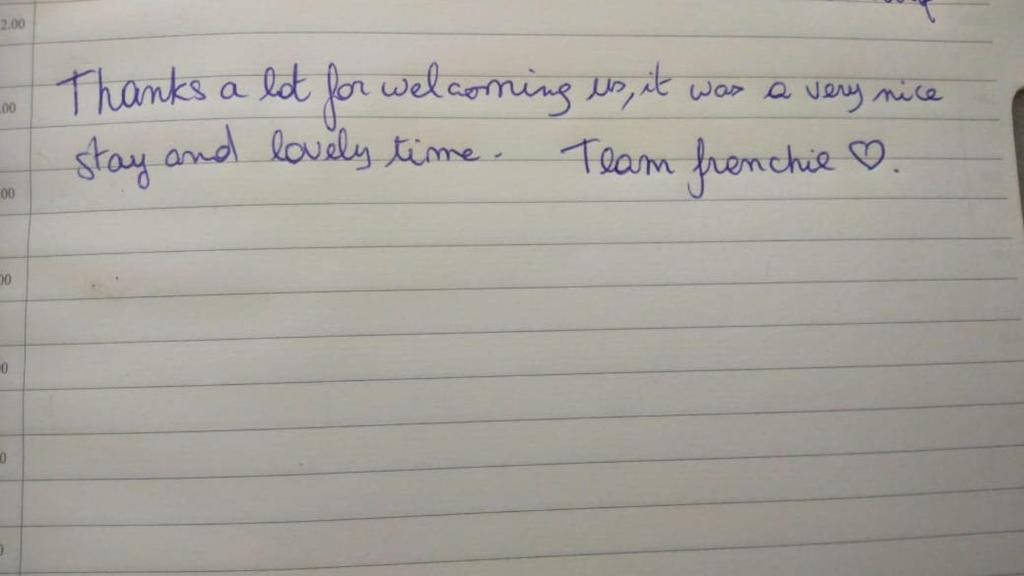 2.00
.00
Thanks a lot for welcoming us, it was a very nice
stay and lovely time. Team frenchie ♡.
00
00
0
0